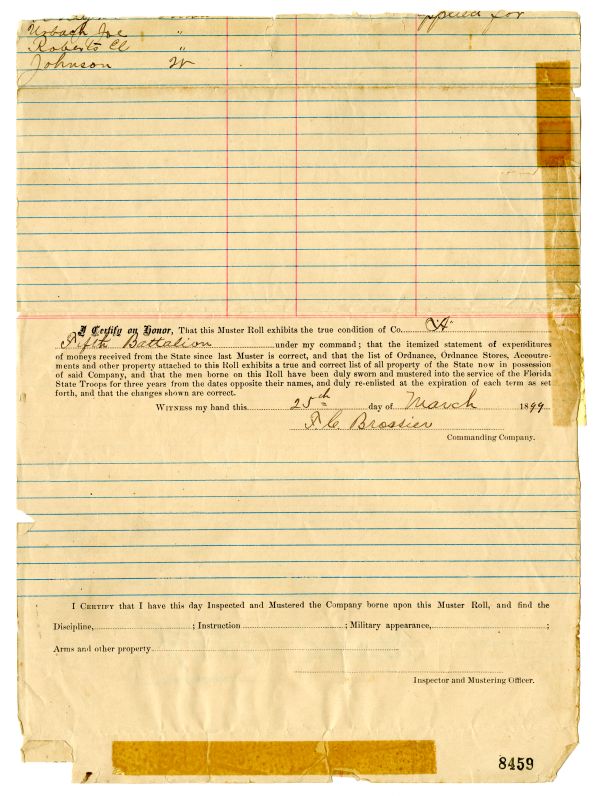 for
Urbach Joe "
Roberts Cl "
Johnson W
I Certify on Honor, That this Muster Roll exhibits the true condition of Co. "A"
Fifth Battalion under my command; that the itemized statement of expenditures
of moneys received from the State since last Muster is correct, and that the list of Ordnance, Ordnance Stores, Accoutre-
ments and other property attached to this Roll exhibits a true and correct list of all property of the State now in possession
of said Company, and that the men borne on this Roll have been duly sworn and mustered into the service of the Florida
State Troops for three years from the dates opposite their names, and duly re-enlisted at the expiration of each term as set
forth, and that the changes shown are correct.
Witness my hand this 25th day of March 1899
F. C. Brossier
Commanding Company.
I Certify that I have this day Inspected and Mustered the Company borne upon this Muster Roll, and find the
Discipline, ; Instruction ; Military appearance, ;
Arms and other property
Inspector and Mustering Officer.
8459